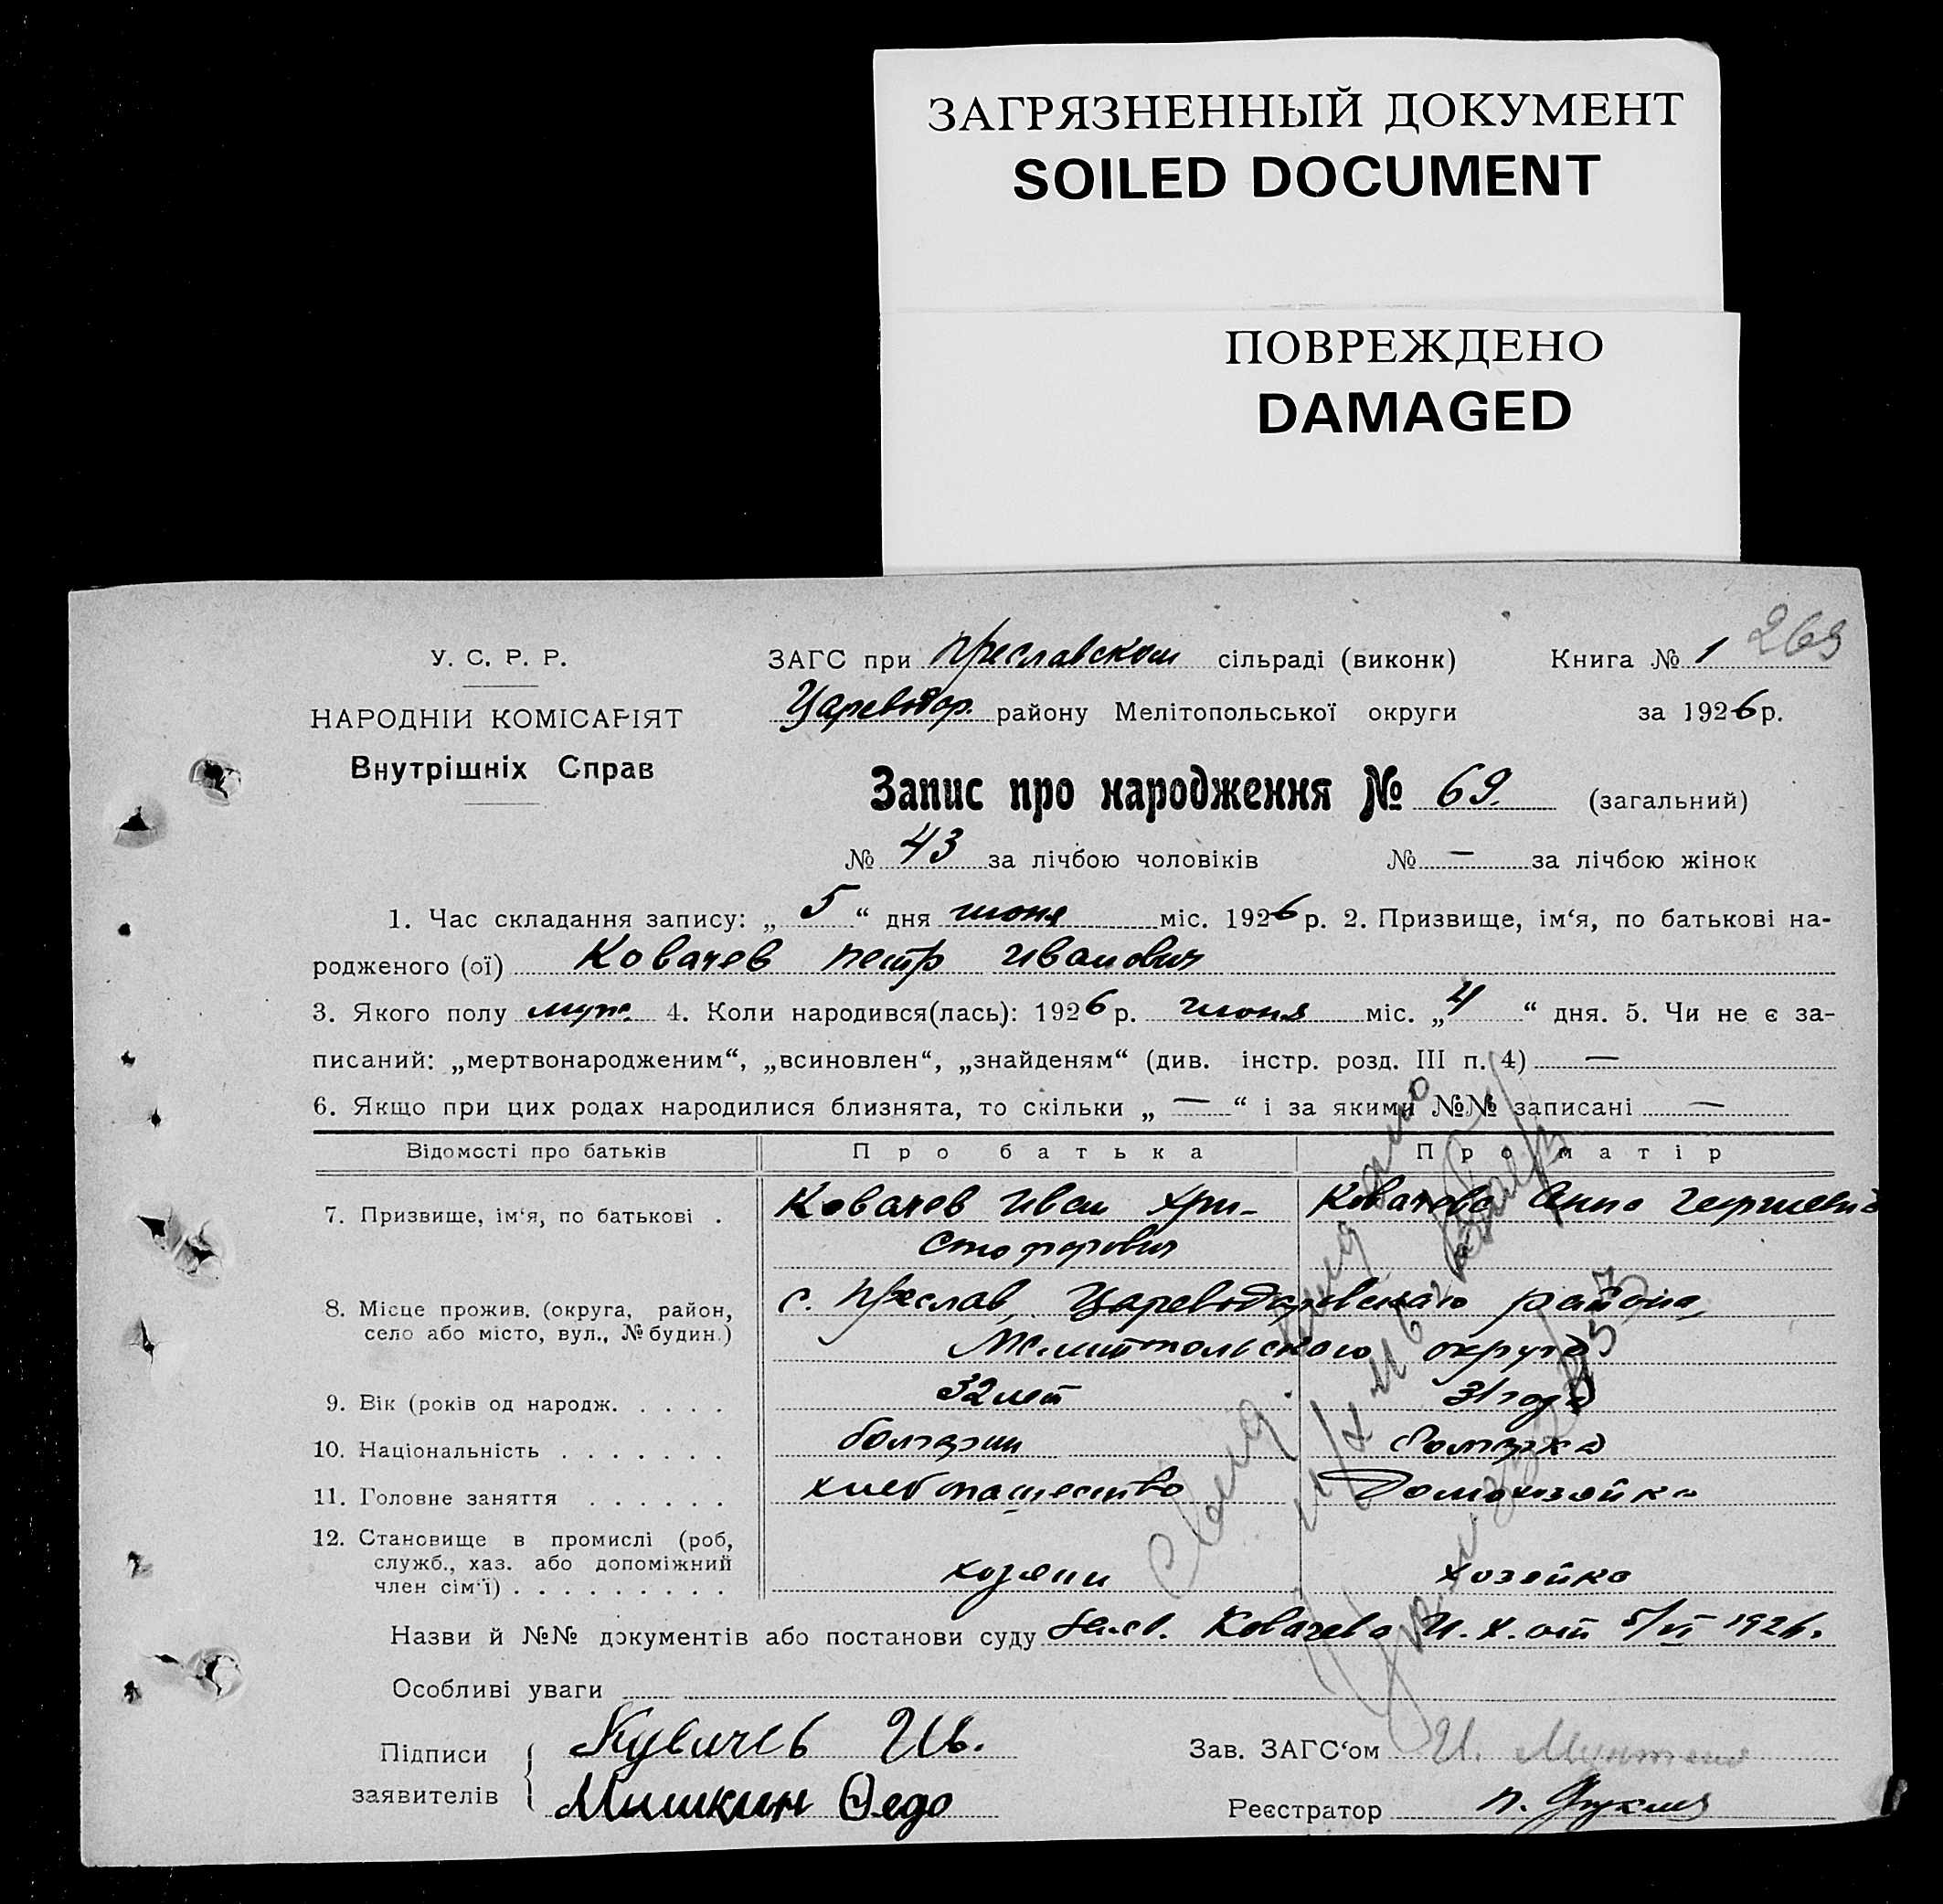 ЗАГРЯЗНЕННЫЙ ДОКУМЕНТ
SOILED DOCUMENT
ПОВРЕЖДЕНО
DAMAGED
269
У. С. Р. Р.
НАРОДНІЙ КОМІСАРІЯТ
Внутрішніх Справ
ЗАГС при Преславском сільраді (виконк) Книга № 1
Цареводар. району Мелітопольської округи за 1926 р.
Запис про народження № 69. (загальний)
№ 43 за лічбою чоловіків № — за лічбою жінок
1. Час складання запису: „ 5 “ дня июня міс. 1926 р. 2. Призвище, ім‘я, по батькові на-
родженого (ої) Ковачев Петр Иванович
3. Якого полу муж. 4. Коли народився(лась): 1926 р. июня міс. „ 4 “ дня. 5. Чи не є за-
писаний: „мертвонародженим“, „всиновлен“, „знайденям“ (див. інстр. розд. III п. 4) —
6. Якщо при цих родах народилися близнята, то скільки „ — “ і за якими №№ записані —
Відомості про батьків Про батька Про матір
7. Призвище, ім‘я, по батькові . Ковачев Иван Хри- Ковачева Анна
стофорович
8. Місце прожив. (округа, район, с. Преслав, Цареводаровского района,
село або місто, вул., № будин.) Мелитопольского округа
9. Вік (років од народж. . . . . 32 лет 31 год
10. Національність . . . . . . . болгарин болгарка
11. Головне заняття . . . . . . хлебопашество Домохозяйка
12. Становище в промислі (роб,
служб., хаз. або допоміжний
член сім‘ї) . . . . . . . . . хозяин хозяйка
Назви й №№ документів або постанови суду Ковачева И. Х. от 5/VI 1926.
Особливі уваги
Підписи
заявителів
Ив.
Мишкин Федо
Зав. ЗАГС‘ом И.
Реєстратор П.